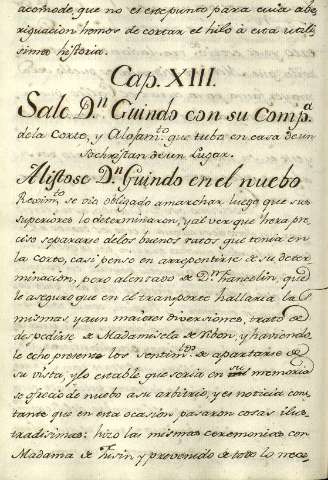 acomode, que no es este punto para cuia abe,
riguacion hemos de cortar el hilo à esta utili,
sima historia.
Cap. XIII.
Sale D.n Guindo con su Comp.a
de la Corte, y Alojam.to que tubo en casa de un
Sachristan de un Lugar.
Alistose D.n Guindo en el nuebo
Rexim.to se vio obligado a marchar luego que sus
superiores lo determinaron, y al ver que hera pre,
ciso separarse de los buenos ratos que tenia en
la corte, casi penso en arrepentirse de su deter,
minacion, pero alentado de D.n Francelin, que
le aseguro que en el transporte hallaria las
mismas, y aun maiores diversiones, trato de
despedirse de Madamisela de Vbon, y haviendo,
le echo presente los sentim.tos de apartarse de
su vista, y lo estable que seria en su memoria
se ofrecio de nuebo a su arbitrio, y es noticia cons,
tante que en esta ocasion pasaron cosas ilus,
tradisimas: hizo las mismas ceremonias con
Madama de Fisin, y prevenido de todo lo nece,